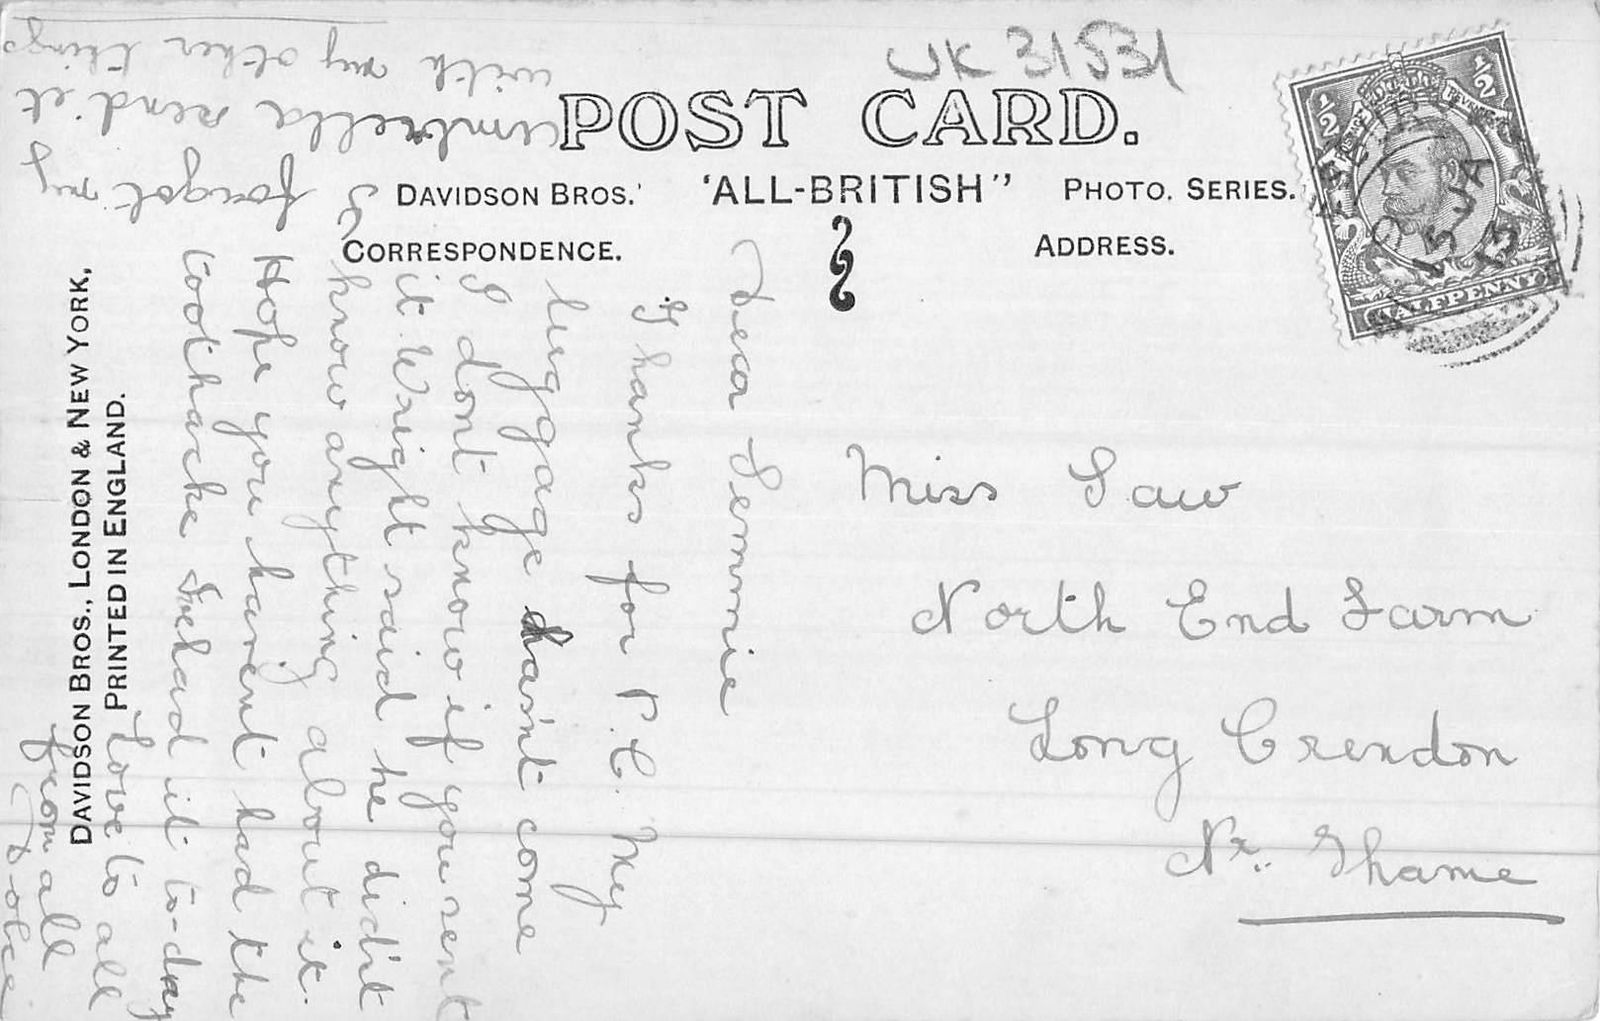 UK 31531
POST CARD.
DAVIDSON BROS.' 'ALL-BRITISH" PHOTO. SERIES.
CORRESPONDENCE.
ADDRESS.
DAVIDSON BROS., LONDON & NEW YORK,
PRINTED IN ENGLAND.
Dear Lemmie
Thanks for P.C. My
luggage haint come
I dont know if you sent
it Wright said he did'nt
know anything about it.
Hope you havent had the
toothache I've had it to-day
Love to all
from all
I forgot my
umbrella send it
with my other things
Miss Saw
North End Farm
Long Crendon
Nr. Thame
1/2 1/2
HALFPENNY
15 JA
13